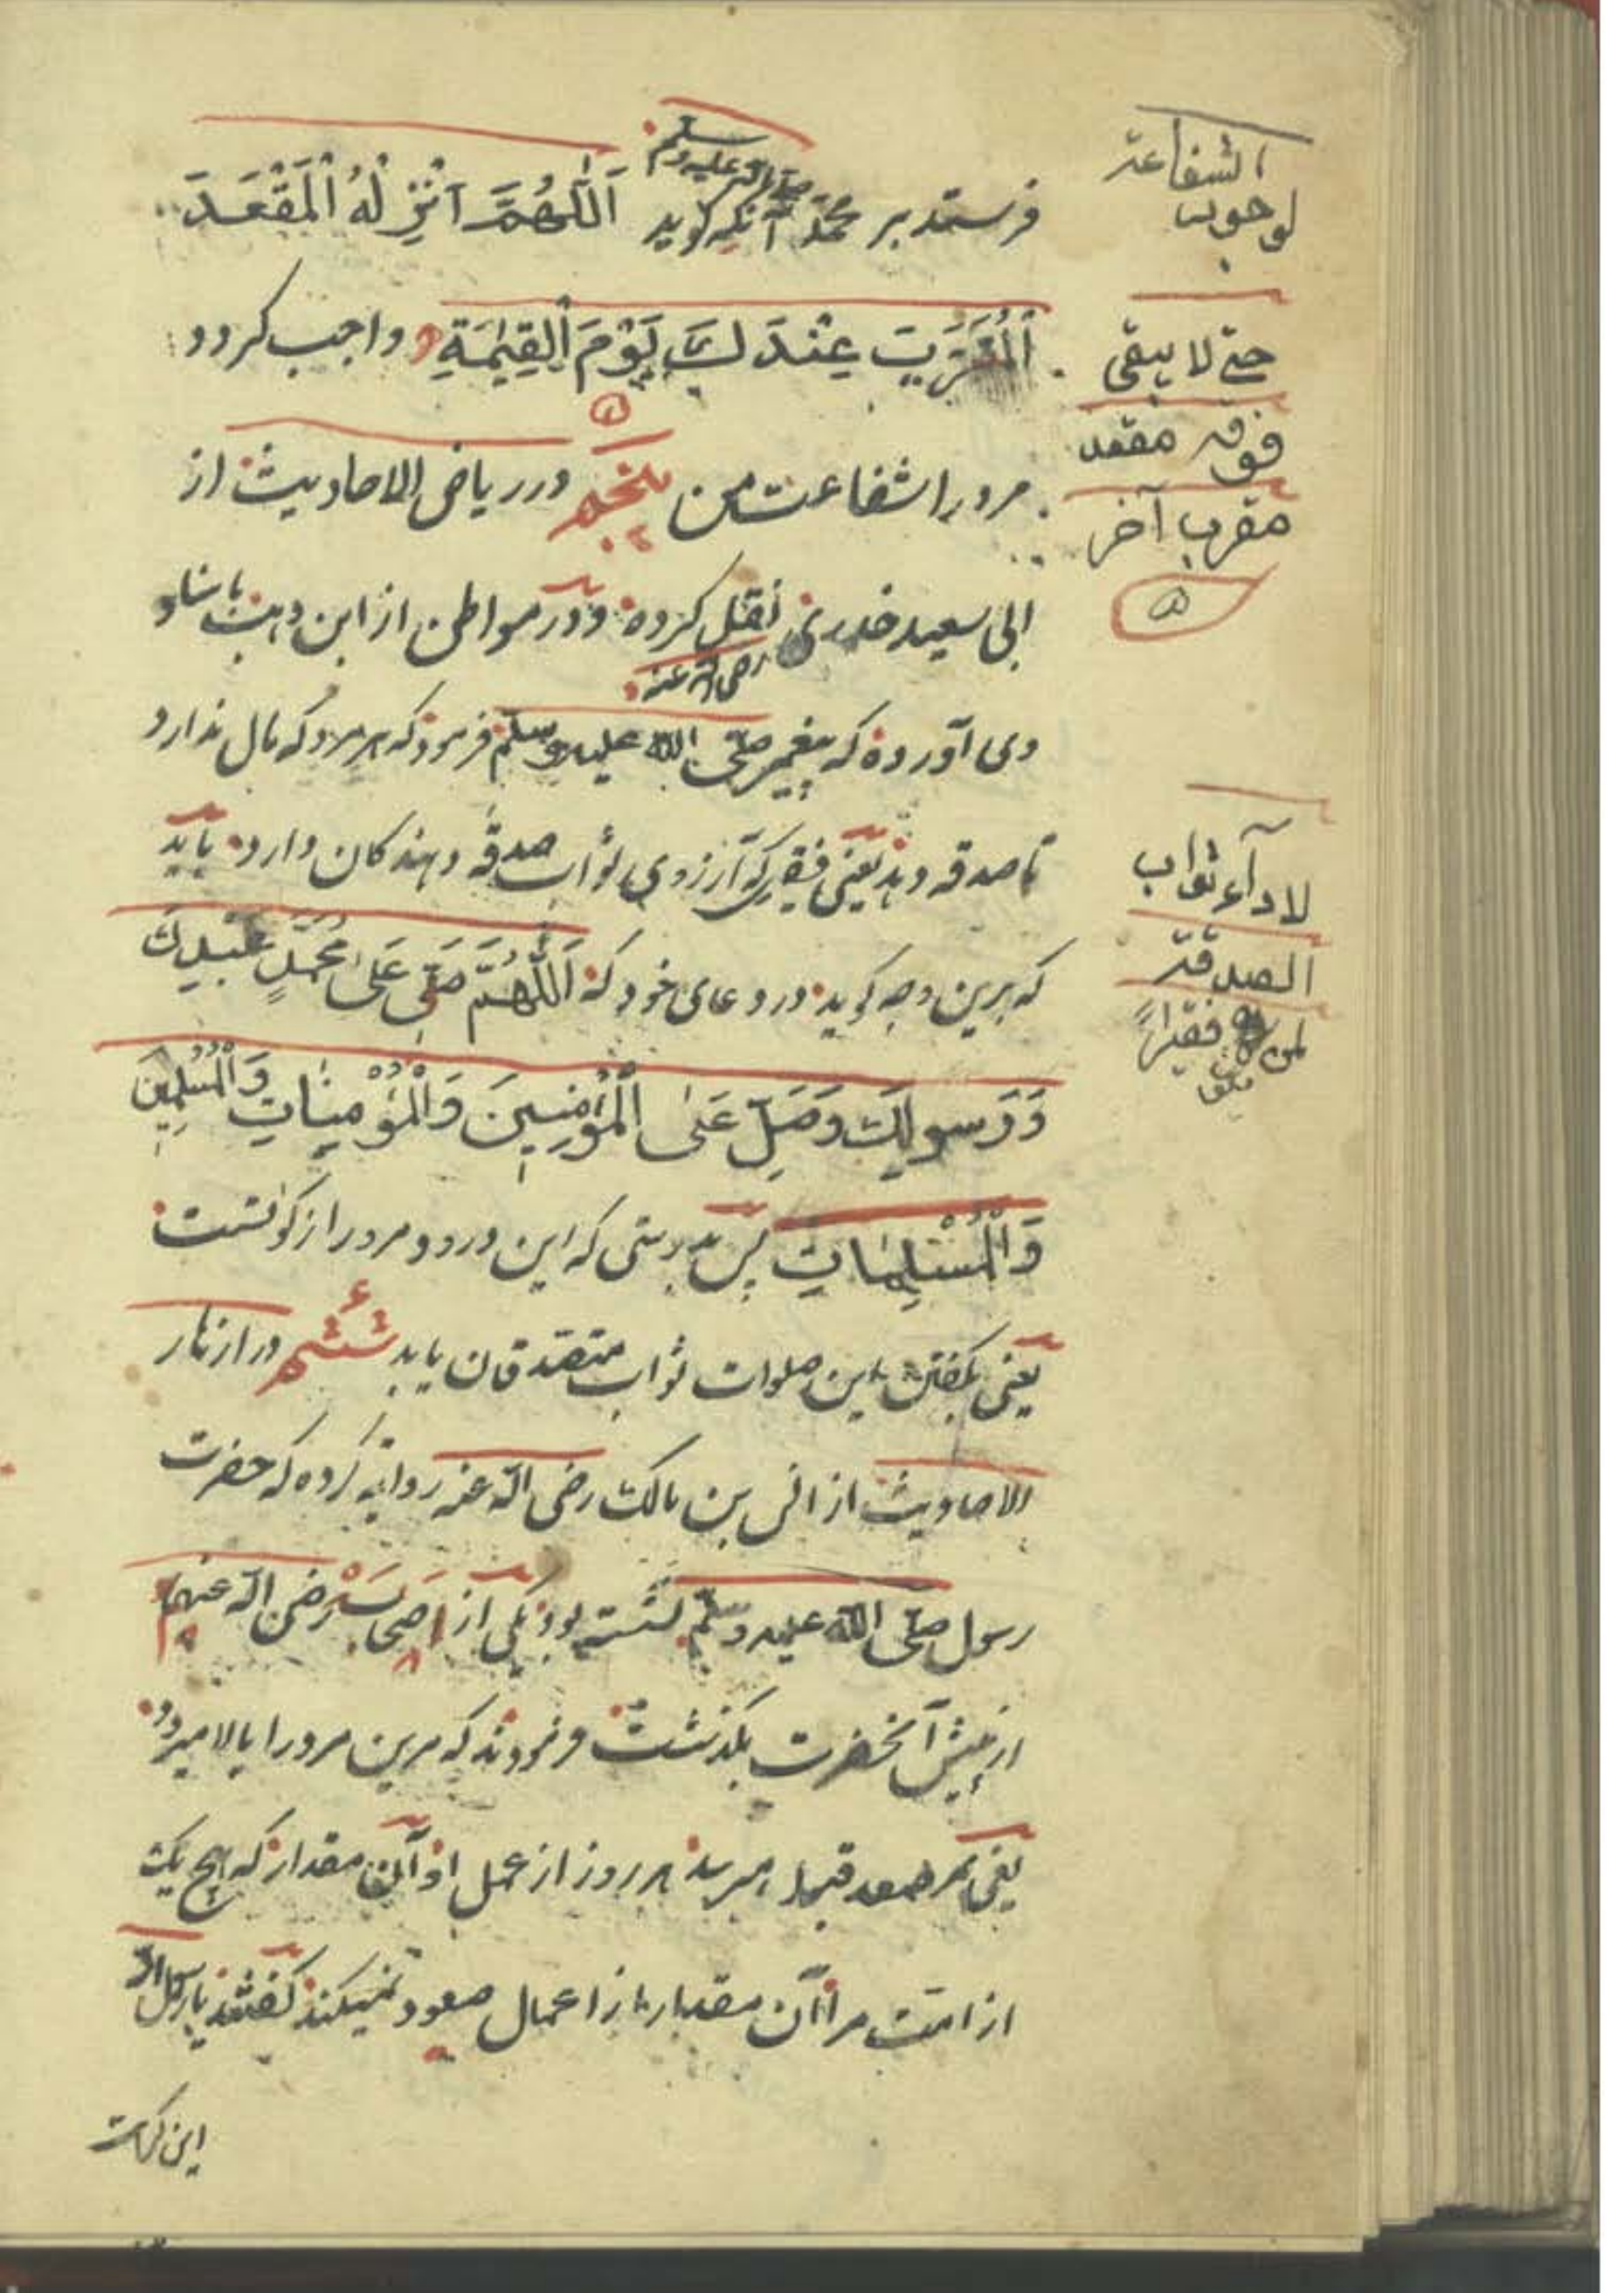 فرستد بر محمد صلی الله علیه وسلم آنکه گوید اَللّٰهُمَّ اَنْزِلْهُ الْمَقْعَدَ
الْمُقَرَّبَ عِنْدَكَ يَوْمَ الْقِيٰمَةِ واجب کردد
مرورا شفاعت من پنجم در ریاض الاحادیث از
ابی سعید خدری رضی الله عنه نقل کرده و در مواطن از ابن وهب باسناد
وی آورده که پیغمبر صلی الله علیه وسلم فرمود که هر مرد که مال ندارد
تا صدقه دهد یعنی فقیری که آرزوی ثواب صدقه دهندکان دارد باید
که برین وجه کوید در دعای خود که اَللّٰهُمَّ صَلِّ عَلٰى مُحَمَّدٍ عَبْدِكَ
وَرَسولِكَ وَصَلِّ عَلٰى الْمُؤْمِنِينَ وَالْمُؤْمِنٰاتِ وَالْمُسْلِمِينَ
وَالْمُسْلِمٰاتِ پس بدرستی که این درود مرورا زکوتست
یعنی بکفتن این صلوات ثواب متصدقان یابد ششم در ازهار
الاحادیث از انس بن مالک رضی الله عنه روایة کرده که حضرت
رسول صلی الله علیه وسلم نشسته بود یکی از اصحاب رضی الله عنهم
از پیش آنحضرت بگذشت فرمودند که مرین مرد را بالا میبرد
یعنی هر روز از عمل او آن مقدار که هیچ یک
از امت مرا آن مقدار از اعمال صعود نمیکند کفتند یا رسول الله
این کرامت
الشفاعة
لوجوب
حتی لا یبقی
فوقه مقعد
مقرب آخر
لاداء ثواب
الصدقة
لمن کان فقیراً